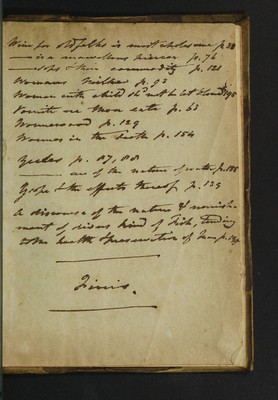 Wine for old folks is most wholesome p. 38
—— is a marvellous piercer p. 76
—— sops & their commodity p. 121
Womans Milke p. 93
Women with child shd not be let blood p. 195
Vomitt ore then eate p. 63
Wormewood p. 129
Wormes in the teeth p. 154
p. 87, 88
—— are of the nature of water p. 188
Ysope & the effects thereof p. 129
A discourse of the nature & nourish-
ment of divers kind of Fish, tending
to the health & preservation of Man p.
Finis.